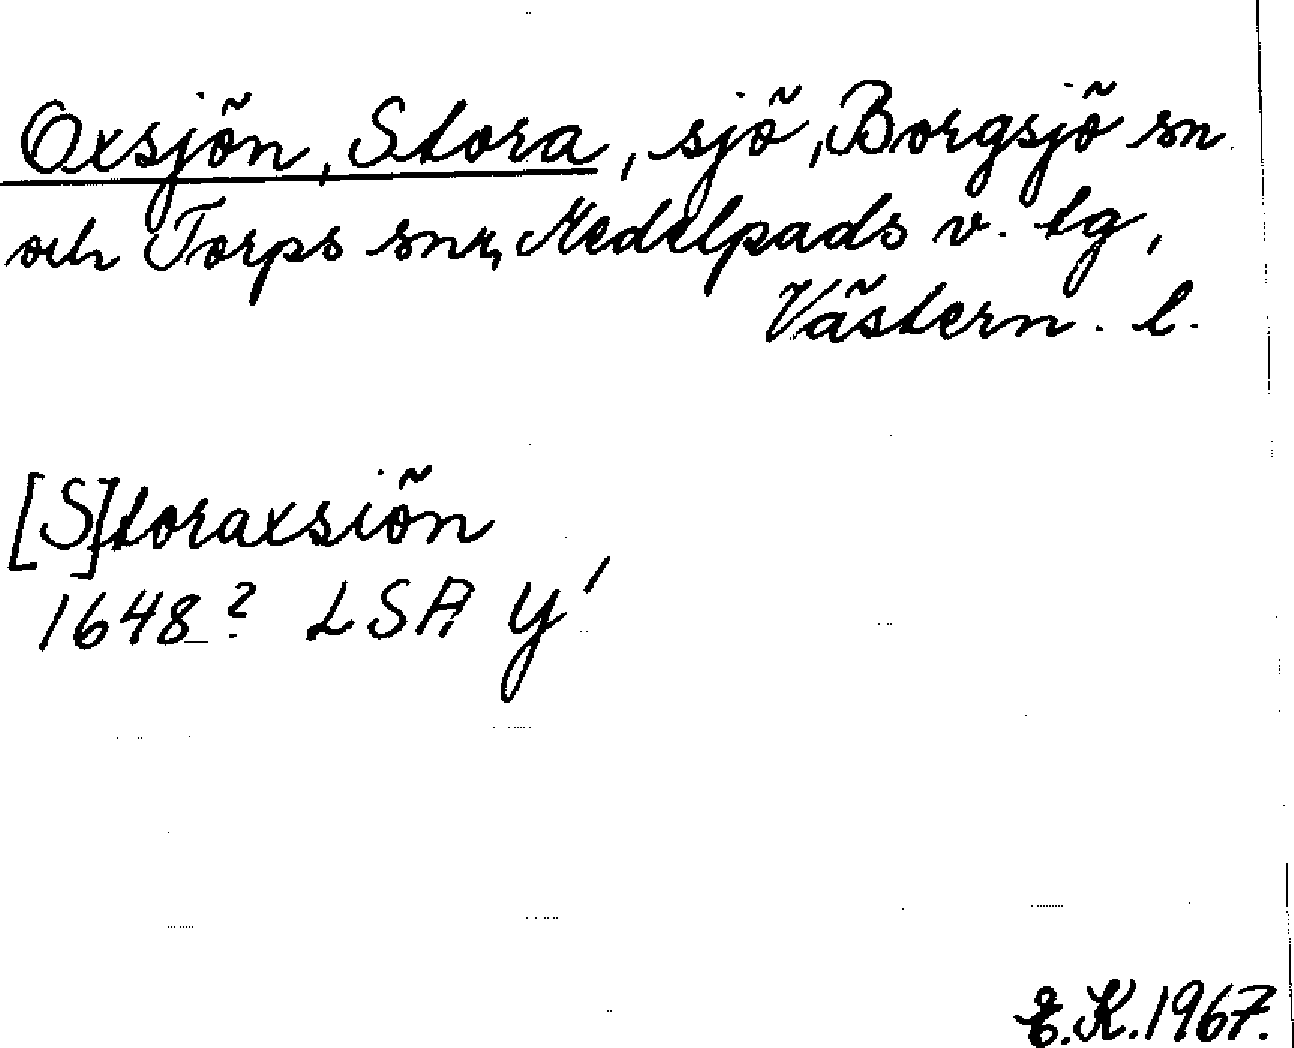 Oxsjön, Stora, sjö, Borgsjö sn
och Torps snr, Medelpads v. tg,
Västern. l.
[S]toraxsiön
1648? LSA Y'
E.K.1967.